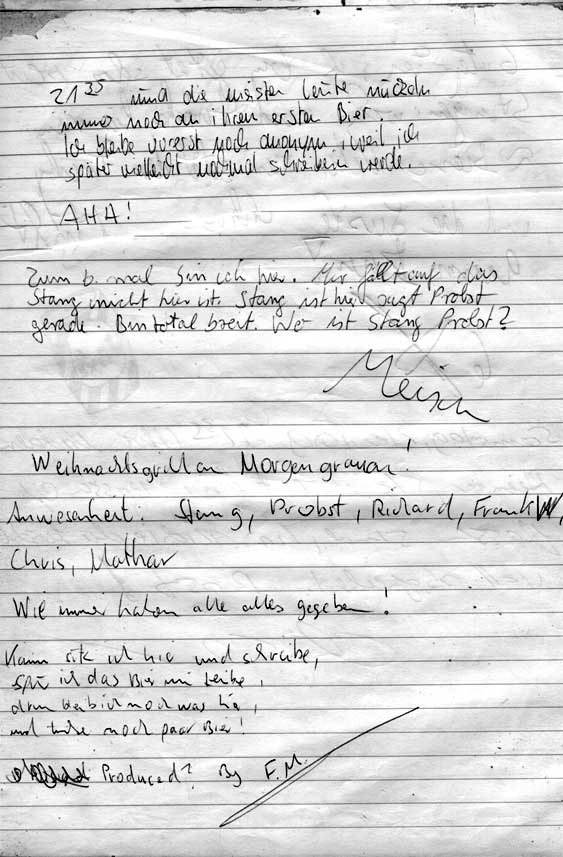 21 35 und die meisten Leute nuckeln
immer noch an ihren ersten Bier.
Ich bleibe vorerst noch anonym, weil ich
später vielleicht nochmal schreiben werde.
AHA!
Zum 6. mal bin ich hier. Mir fällt auf das
Stang nicht hier ist. Stang ist hier sagt Probst
gerade. Bin total breit. Wer ist Stang Probst?
Weihnachtsgrillen Morgengrauen!
Anwesenheit: Stang, Probst, Richard, Frank W,
Chris, Mathar
Wie immer haben alle alles gegeben!
Kaum sitz ich hie und schreibe,
spür ich das Bier im Leibe,
drum bleib ich noch was hie,
und trinke noch paar Bier!
Produced? By F.M.